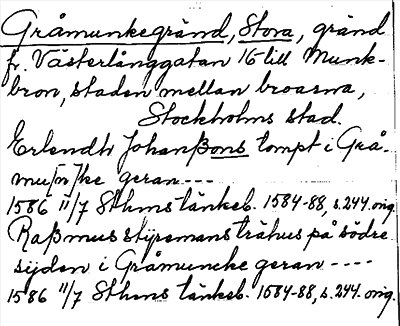 Gråmunkegränd, Stora, gränd
fr. Västerlånggatan 16 till Munk-
bron, staden mellan broarna,
Stockholms stad.
Erlendh Johanßons tompt i Grå-
mu[n]ke geran ---
1586 11/7 Sthms tänkeb. 1584-88 s. 244. orig.
Raßmus stÿremans trähus på södre
sijden i Gråmuncke geran ----
1586 11/7 Sthms tänkeb. 1584-88, s. 244. orig.